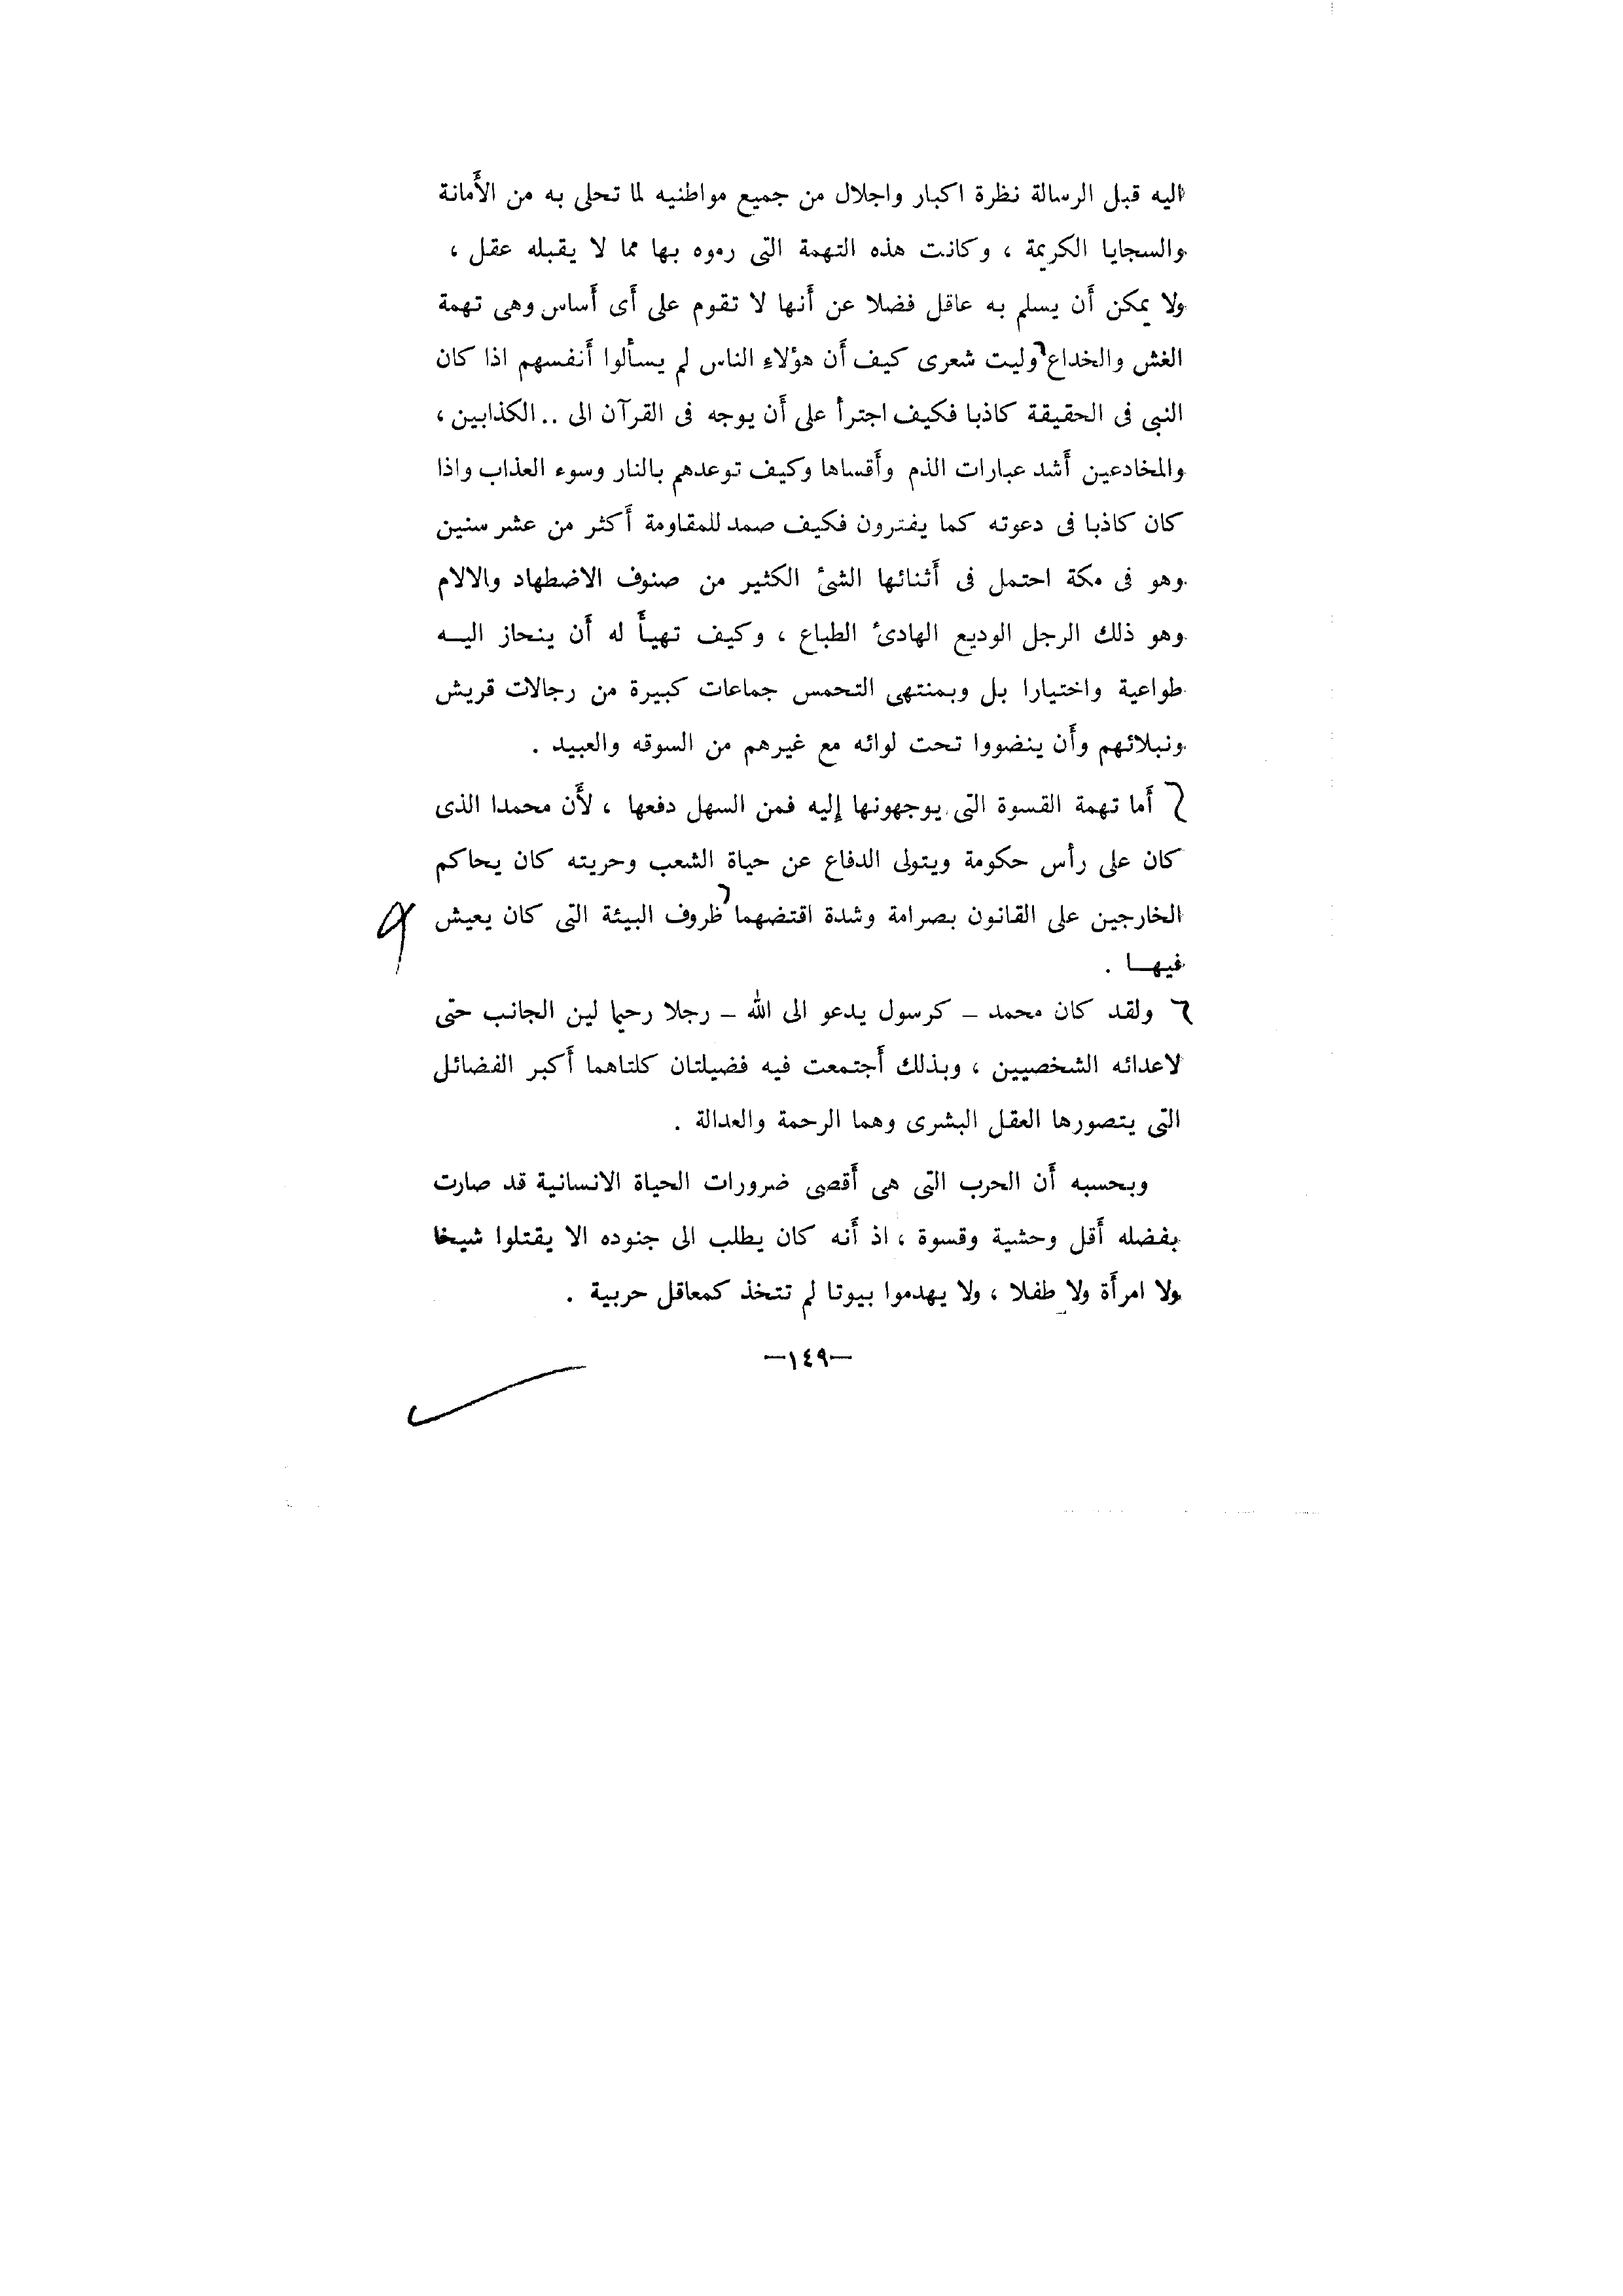 اليه قبل الرسالة نظرة اكبار واجلال من جميع مواطنيه لما تحلى به من الأَمانة
والسجايا الكريمة ، وكانت هذه التهمة التى رموه بها مما لا يقبله عقل ،
ولا يمكن أَن يسلم به عاقل فضلا عن أَنها لا تقوم على أَى أَساس وهى تهمة
الغش والخداع وليت شعرى كيف أَن هؤلاءِ الناس لم يسأَلوا أَنفسهم اذا كان
النبى فى الحقيقة كاذبا فكيف اجترأ على أَن يوجه فى القرآن الى .. الكذابين ،
والمخادعين أَشد عبارات الذم وأَقساها وكيف توعدهم بالنار وسوء العذاب واذا
كان كاذبا فى دعوته كما يفترون فكيف صمد للمقاومة أَكثر من عشر سنين
وهو فى مكة احتمل فى أَثنائها الشئ الكثير من صنوف الاضطهاد والالام
وهو ذلك الرجل الوديع الهادئ الطباع ، وكيف تهيأَ له أَن ينحاز اليـــه
طواعية واختيارا بل وبمنتهى التحمس جماعات كبيرة من رجالات قريش
ونبلائهم وأَن ينضووا تحت لوائه مع غيرهم من السوقه والعبيد .
أَما تهمة القسوة التى يوجهونها إليه فمن السهل دفعها ، لأَن محمدا الذى
كان على رأس حكومة ويتولى الدفاع عن حياة الشعب وحريته كان يحاكم
الخارجين على القانون بصرامة وشدة اقتضهما ظروف البيئة التى كان يعيش
فيهــا .
ولقد كان محمد – كرسول يدعو الى الله – رجلا رحيما لين الجانب حتى
لاعدائه الشخصيين ، وبذلك أَجتمعت فيه فضيلتان كلتاهما أَكبر الفضائل
التى يتصورها العقل البشرى وهما الرحمة والعدالة .
وبحسبه أَن الحرب التى هى أَقصى ضرورات الحياة الانسانية قد صارت
بفضله أَقل وحشية وقسوة ، اذ أَنه كان يطلب الى جنوده الا يقتلوا شيخا
ولا امرأَة ولا طفلا ، ولا يهدموا بيوتا لم تتخذ كمعاقل حربية .
—١٤٩—